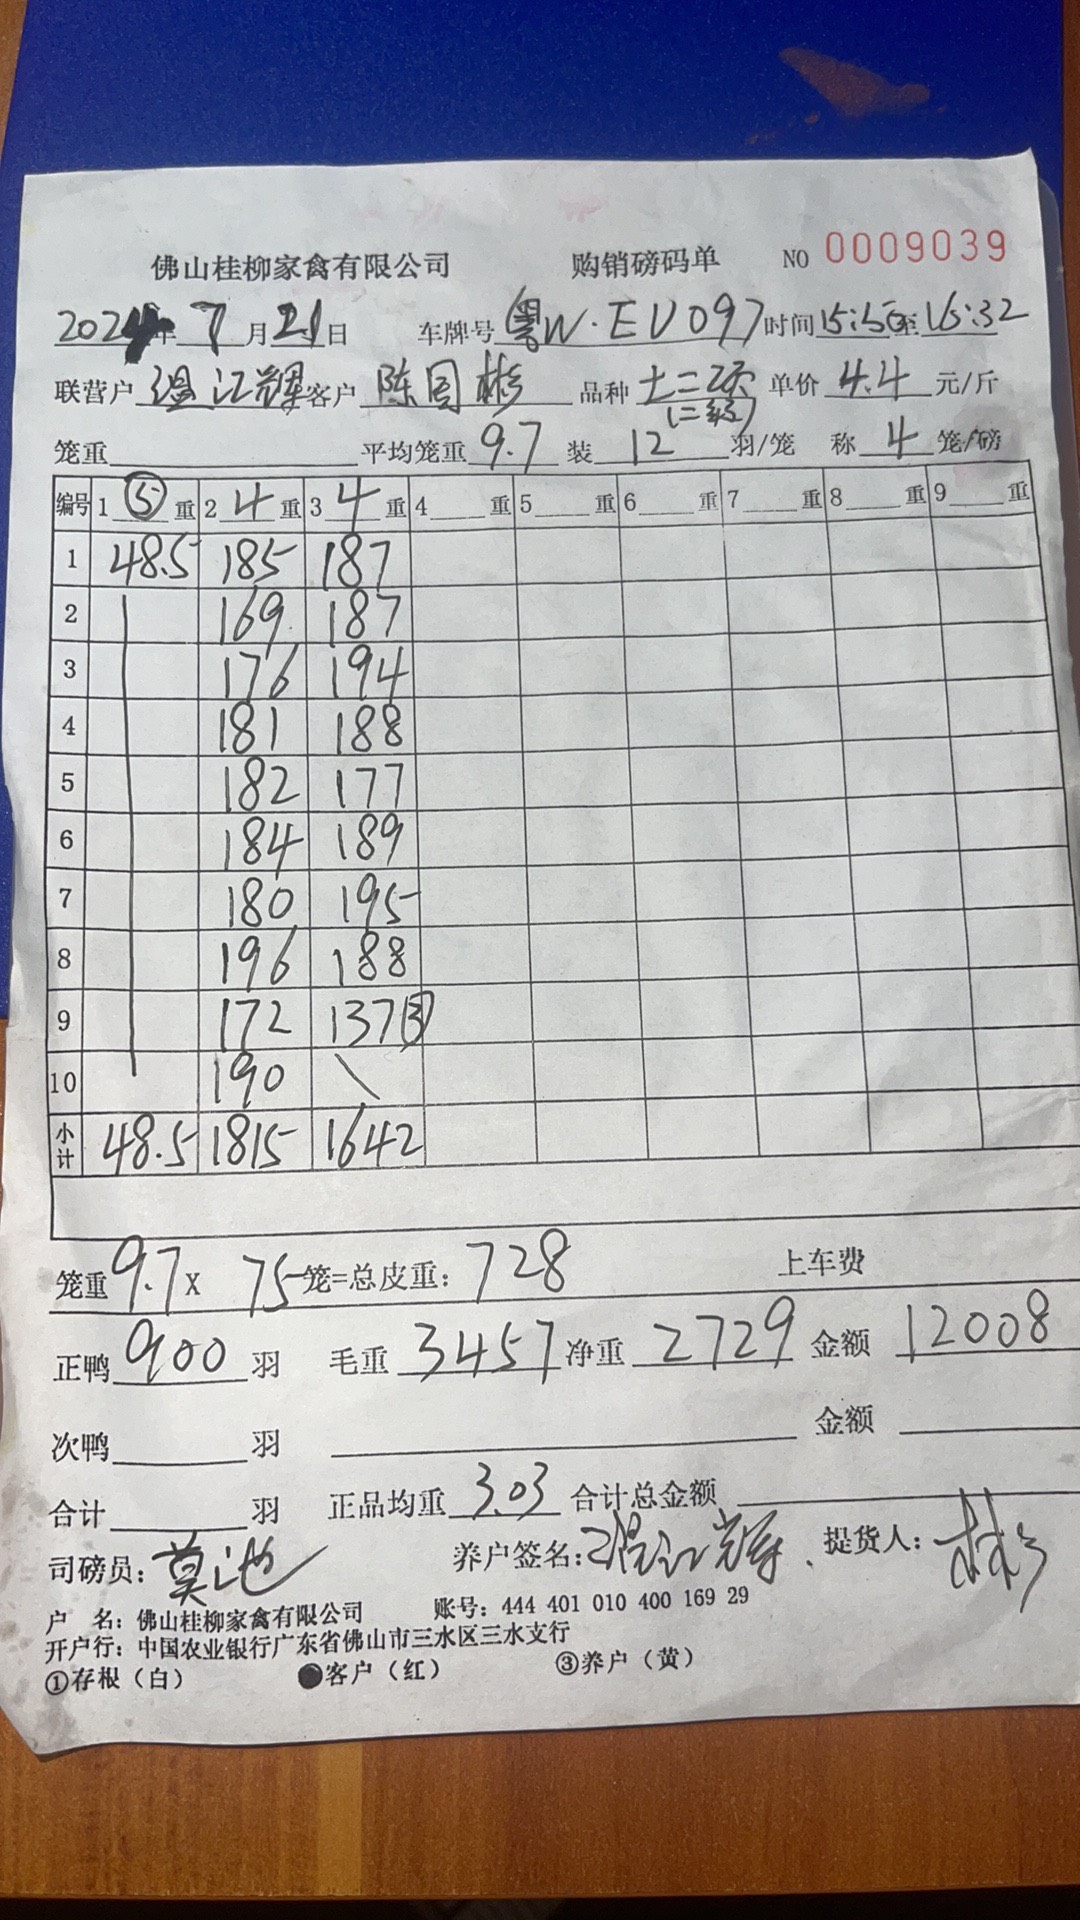 佛山桂柳家禽有限公司 购销磅码单 NO 0009039
2024年7月21日 车牌号 粤W·EV097 时间15:56至16:32
联营户 温江辉 客户 陈国彬 品种 十二项 单价 4.4 元/斤
(二级)
笼重 平均笼重 9.7 装 12 羽/笼 称 4 笼/磅
编号 1 ⑤ 重 2 4 重 3 4 重 4 重 5 重 6 重 7 重 8 重 9 重
1 48.5 185 187
2 169 187
3 176 194
4 181 188
5 182 177
6 184 189
7 180 195
8 196 188
9 172 137 ③
10 190
小计 48.5 1815 1642
笼重 9.7 X 75 笼=总皮重: 728 上车费
正鸭 900 羽 毛重 3457 净重 2729 金额 12008
次鸭 羽 金额
合计 羽 正品均重 3.03 合计总金额
司磅员: 莫池 养户签名: 温江辉 提货人: 彬
户 名: 佛山桂柳家禽有限公司 账号: 444 401 010 400 169 29
开户行: 中国农业银行广东省佛山市三水区三水支行
①存根(白) 客户(红) ③养户(黄)